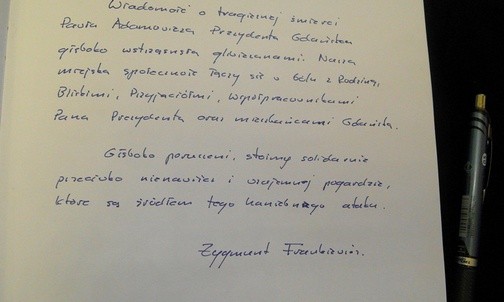 Wiadomość o tragicznej śmierci
Pawła Adamowicza Prezydenta Gdańska
głęboko wstrząsnęła gliwiczanami. Nasza
miejska społeczność łączy się w bólu z Rodziną,
Bliskimi, Przyjaciółmi, Współpracownikami
Pana Prezydenta oraz mieszkańcami Gdańska.
Głęboko poruszeni, stoimy solidarnie
przeciwko nienawiści i wzajemnej pogardzie,
które są źródłem tego haniebnego ataku.
Zygmunt Frankiewicz.